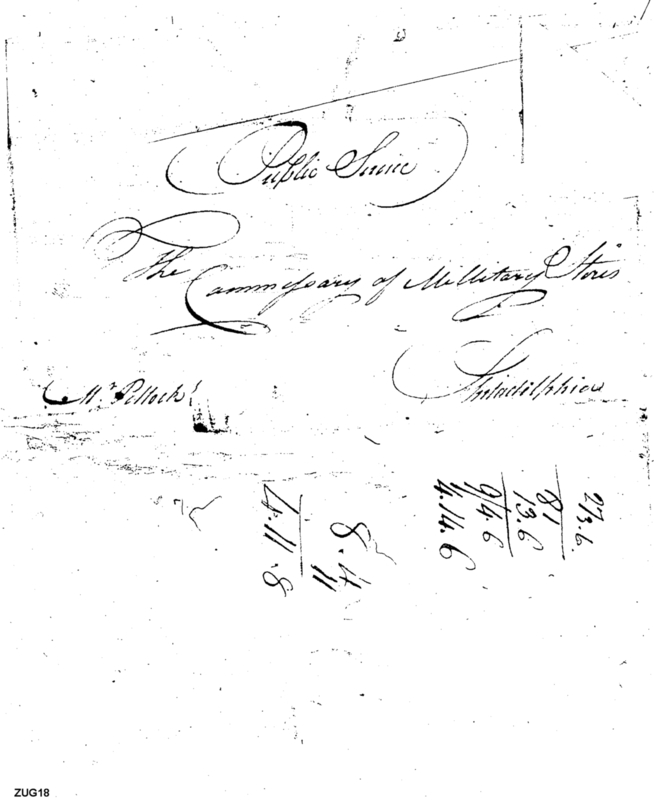 Public Service
The Commissary of Millitary Stores
Philadelphia
Mr. Pollock
27/3.6.
81
13.6
9/4.6
4.14.6
8.4
11
4.11.8
ZUG18